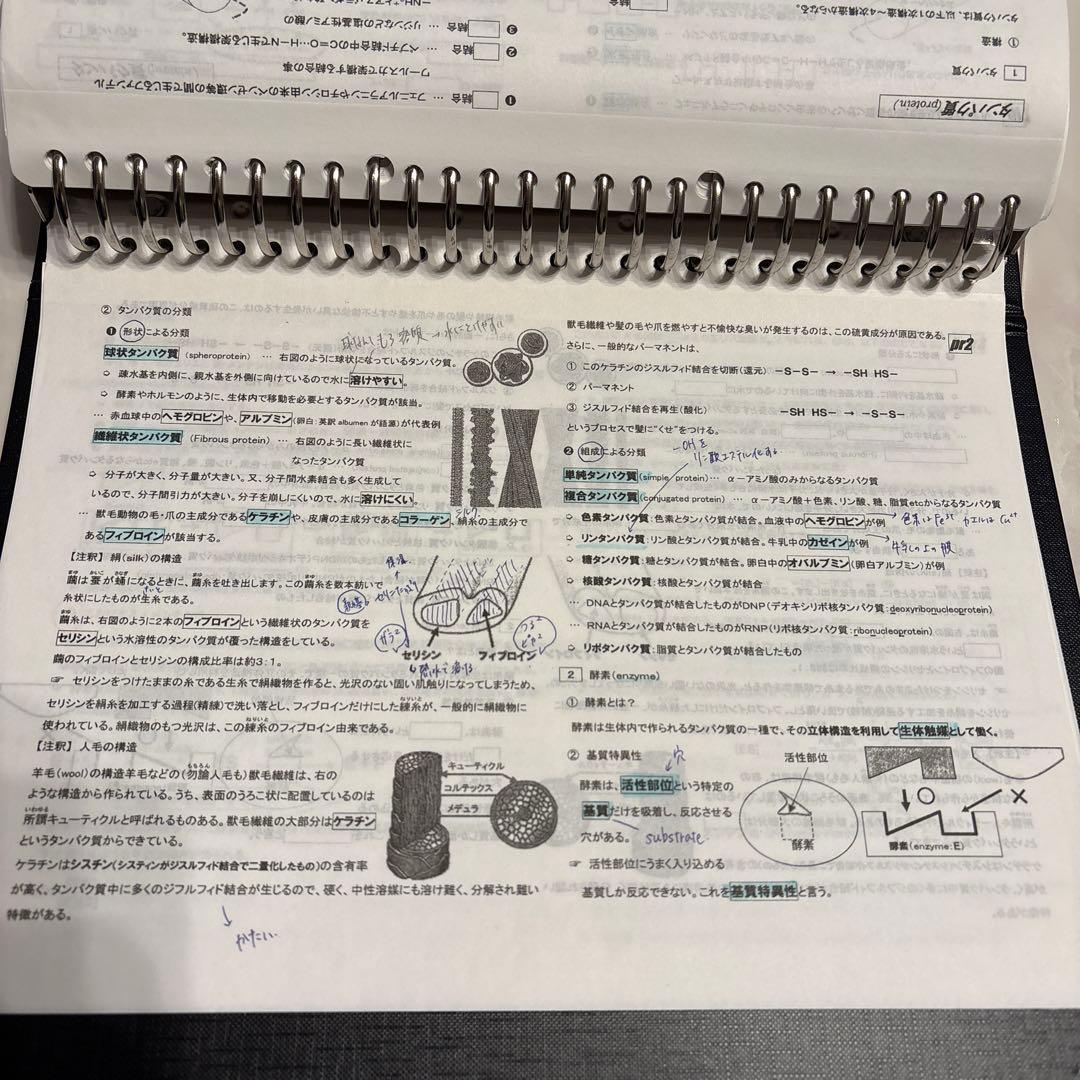 タンパク質(protein)
1 タンパク質
① 構造
タンパク質は、以下の1次構造~4次構造からなる。
❶ 結合 … フェニルアラニンやチロシン由来のベンゼン環等の間で生じるファンデル
ワールス力で架橋する結合の事
❷ 結合 … ペプチド結合中のC=O…H-Nで生じる架橋構造。
❸ 結合 … リシンなどの塩基性アミノ酸の
② タンパク質の分類
❶ 形状による分類
球状タンパク質 (spheroprotein) … 右図のように球状になっているタンパク質。
➲ 疎水基を内側に、親水基を外側に向けているので水に溶けやすい。
➲ 酵素やホルモンのように、生体内で移動を必要とするタンパク質が該当。
… 赤血球中のヘモグロビンや、アルブミン(卵白:英訳 albumen が語源)が代表例
繊維状タンパク質 (Fibrous protein) … 右図のように長い繊維状に
なったタンパク質
➲ 分子が大きく、分子量が大きい。又、分子間水素結合も多く生成して
いるので、分子間引力が大きい。分子を崩しにくいので、水に溶けにくい。
シルク
… 獣毛動物の毛・爪の主成分であるケラチンや、皮膚の主成分であるコラーゲン、絹糸の主成分で
あるフィブロインが該当する。
【注釈】 絹(silk)の構造
繭は蚕が蛹になるときに、繭糸を吐き出します。この繭糸を数本紡いで
糸状にしたものが生糸である。
繭糸は、右図のように2本のフィブロインという繊維状のタンパク質を
セリシンという水溶性のタンパク質が覆った構造をしている。
セリシン フィブロイン
繭のフィブロインとセリシンの構成比率は約3:1。
☞ セリシンをつけたままの糸である生糸で絹織物を作ると、光沢のない固い肌触りになってしまうため、
セリシンを絹糸を加工する過程(精練)で洗い落とし、フィブロインだけにした練糸が、一般的に絹織物に
使われている。絹織物のもつ光沢は、この練糸のフィブロイン由来である。
【注釈】 人毛の構造
羊毛(wool)の構造羊毛などの(勿論人毛も)獣毛繊維は、右の
ような構造から作られている。うち、表面のうろこ状に配置しているのは
所謂キューティクルと呼ばれるものある。獣毛繊維の大部分はケラチン
というタンパク質からできている。
キューティクル
コルテックス
メデュラ
ケラチンはシスチン(システィンがジスルフィド結合で二量化したもの)の含有率
が高く、タンパク質中に多くのジフルフィド結合が生じるので、硬く、中性溶媒にも溶け難く、分解され難い
特徴がある。
↓
かたい
獣毛繊維や髪の毛や爪を燃やすと不愉快な臭いが発生するのは、この硫黄成分が原因である。
pr2
さらに、一般的なパーマネントは、
① このケラチンのジスルフィド結合を切断(還元) -S-S- → -SH HS-
② パーマネント
③ ジスルフィド結合を再生(酸化) -SH HS- → -S-S-
というプロセスで髪に“くせ”をつける。
❷ 組成による分類
-OHを
リン酸エステル化する
単純タンパク質(simple protein)… α-アミノ酸のみからなるタンパク質
複合タンパク質(conjugated protein) … α-アミノ酸+色素、リン酸、糖、脂質etcからなるタンパク質
➲ 色素タンパク質:色素とタンパク質が結合。血液中のヘモグロビンが例
➲ リンタンパク質:リン酸とタンパク質が結合。牛乳中のカゼインが例
牛乳の上の膜
➲ 糖タンパク質:糖とタンパク質が結合。卵白中のオバルブミン(卵白アルブミン)が例
➲ 核酸タンパク質:核酸とタンパク質が結合
… DNAとタンパク質が結合したものがDNP(デオキシリボ核タンパク質:deoxyribonucleoprotein)
… RNAとタンパク質が結合したものがRNP(リボ核タンパク質:ribonucleoprotein)
➲ リポタンパク質:脂質とタンパク質が結合したもの
2 酵素(enzyme)
① 酵素とは?
酵素は生体内で作られるタンパク質の一種で、その立体構造を利用して生体触媒として働く。
② 基質特異性
穴
酵素は、活性部位という特定の
基質だけを吸着し、反応させる
穴がある。
substrate
☞ 活性部位にうまく入り込める
基質しか反応できない。これを基質特異性と言う。
活性部位
酵素
○
×
酵素(enzyme:E)